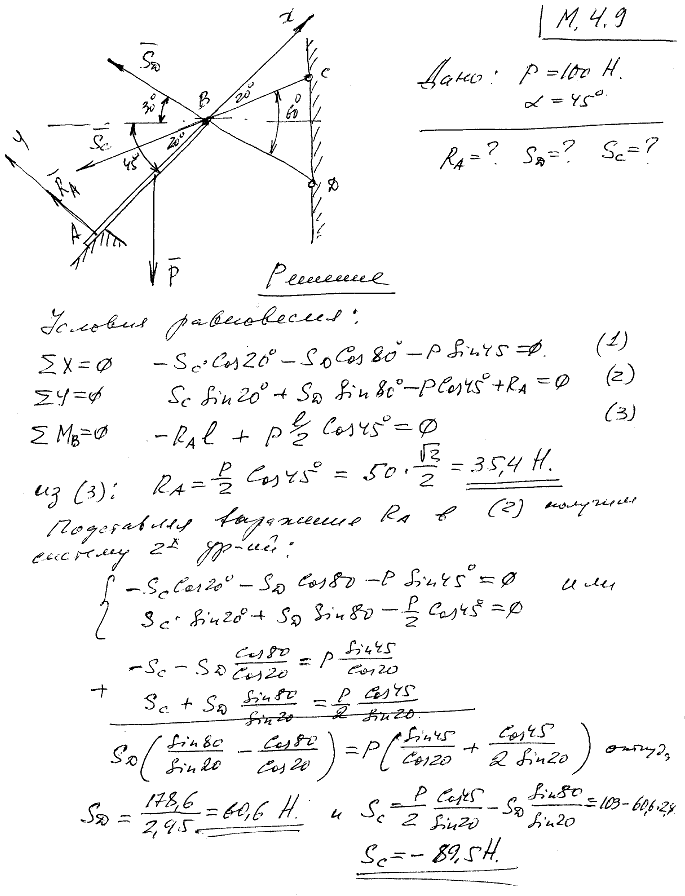 М. 4. 9
Дано: P = 100 Н.
α = 45°
R_A = ? S_D = ? S_C = ?
x
S̄_D
C
B
20°
30°
60°
S̄_C
20°
45°
y
R̄_A
D
A
P̄
Решение
Условия равновесия:
ΣX = 0 -S_C·Cos20° - S_D Cos80° - P Sin45 = 0. (1)
ΣY = 0 S_C Sin20° + S_D Sin80° - P Cos45° + R_A = 0 (2)
ΣM_B = 0 -R_A l + P l/2 Cos45° = 0 (3)
из (3): R_A = P/2 Cos45° = 50·√2/2 = 35,4 Н.
Подставляя выражение R_A в (2) получим
систему 2х ур-ний:
-S_C Cos20° - S_D Cos80 - P Sin45° = 0 или
S_C·Sin20° + S_D Sin80 - P/2 Cos45° = 0
-S_C - S_D Cos80/Cos20 = P Sin45/Cos20
+ S_C + S_D Sin80/Sin20 = P/2 Cos45/Sin20
S_D (Sin80/Sin20 - Cos80/Cos20) = P (Sin45/Cos20 + Cos45/2 Sin20) откуда,
S_D = 178,6/2,95 = 60,6 Н. и S_C = P/2 Cos45/Sin20 - S_D Sin80/Sin20 = 103 - 60,6·2,9.
S_C = -89,5 Н.